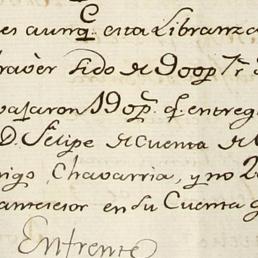 es aunq. esta Libranza
haver sido de 900p
vajaron 190p. q. entreg
D. Felipe de Cuenta de
rigo, Chavarria, y no 2
antesesor en su Cuenta g
Enfrente